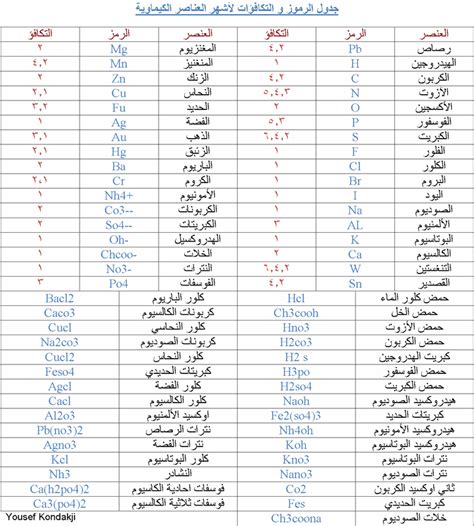 جدول الرموز و التكافؤات لأشهر العناصر الكيماوية
العنصر الرمز التكافؤ العنصر الرمز التكافؤ
رصاص Pb ٤,٢ المغنزيوم Mg ٢
الهيدروجين H ١ المنغنيز Mn ٤,٢
الكربون C ٤,٢ الزنك Zn ٢
الأزوت N ٥,٤,٣ النحاس Cu ٢,١
الأكسجين O ٢ الحديد Fu ٣,٢
الفوسفور P ٥,٣ الفضة Ag ١
الكبريت S ٦,٤,٢ الذهب Au ٣,١
الفلور F ١ الزئبق Hg ٢,١
الكلور Cl ١ الباريوم Ba ٢
البروم Br ١ الكروم Cr ٢,١
اليود I ١ الأمونيوم Nh4+ ١
الصوديوم Na ١ الكربونات Co3-- ٢
الألمنيوم AL ٣ الكبريتات So4-- ٢
البوتاسيوم K ١ الهدروكسيل Oh- ١
الكالسيوم Ca ٢ الخلات Chcoo- ١
التنغستين W ٦,٤,٢ النترات No3- ١
القصدير Sn ٤,٢ الفوسفات Po4 ٣
حمض كلور الماء Hcl كلور الباريوم Bacl2
حمض الخل Ch3cooh كربونات الكالسيوم Caco3
حمض الأزوت Hno3 كلور النحاسي Cucl
حمض الكربون H2co3 كربونات الصوديوم Na2co3
كبريت الهدروجين H2 s كلور النحاس Cucl2
حمض الفوسفور H3po كبريتات الحديدي Feso4
حمض الكبريت H2so4 كلور الفضة Agcl
هيدروكسيد الصوديوم Naoh كلور الكالسيوم Cacl
كبريتات الحديد Fe2(so4)3 اوكسيد الألمنيوم Al2o3
هيدروكسيد الأمونيوم Nh4oh نترات الرصاص Pb(no3)2
هيدروكسيد البوتاسيوم Koh نترات الفضة Agno3
نترات البوتاسيوم Kno3 كلور البوتاسيوم Kcl
نترات الصوديوم Nano3 النشادر Nh3
ثاني اوكسيد الكربون Co2 فوسفات احادية الكاسيوم Ca(h2po4)2
كبريت الحديد Fes فوسفات ثلاثية الكالسيوم Ca3(po4)2
خلات الصوديوم Ch3coona
Yousef Kondakji